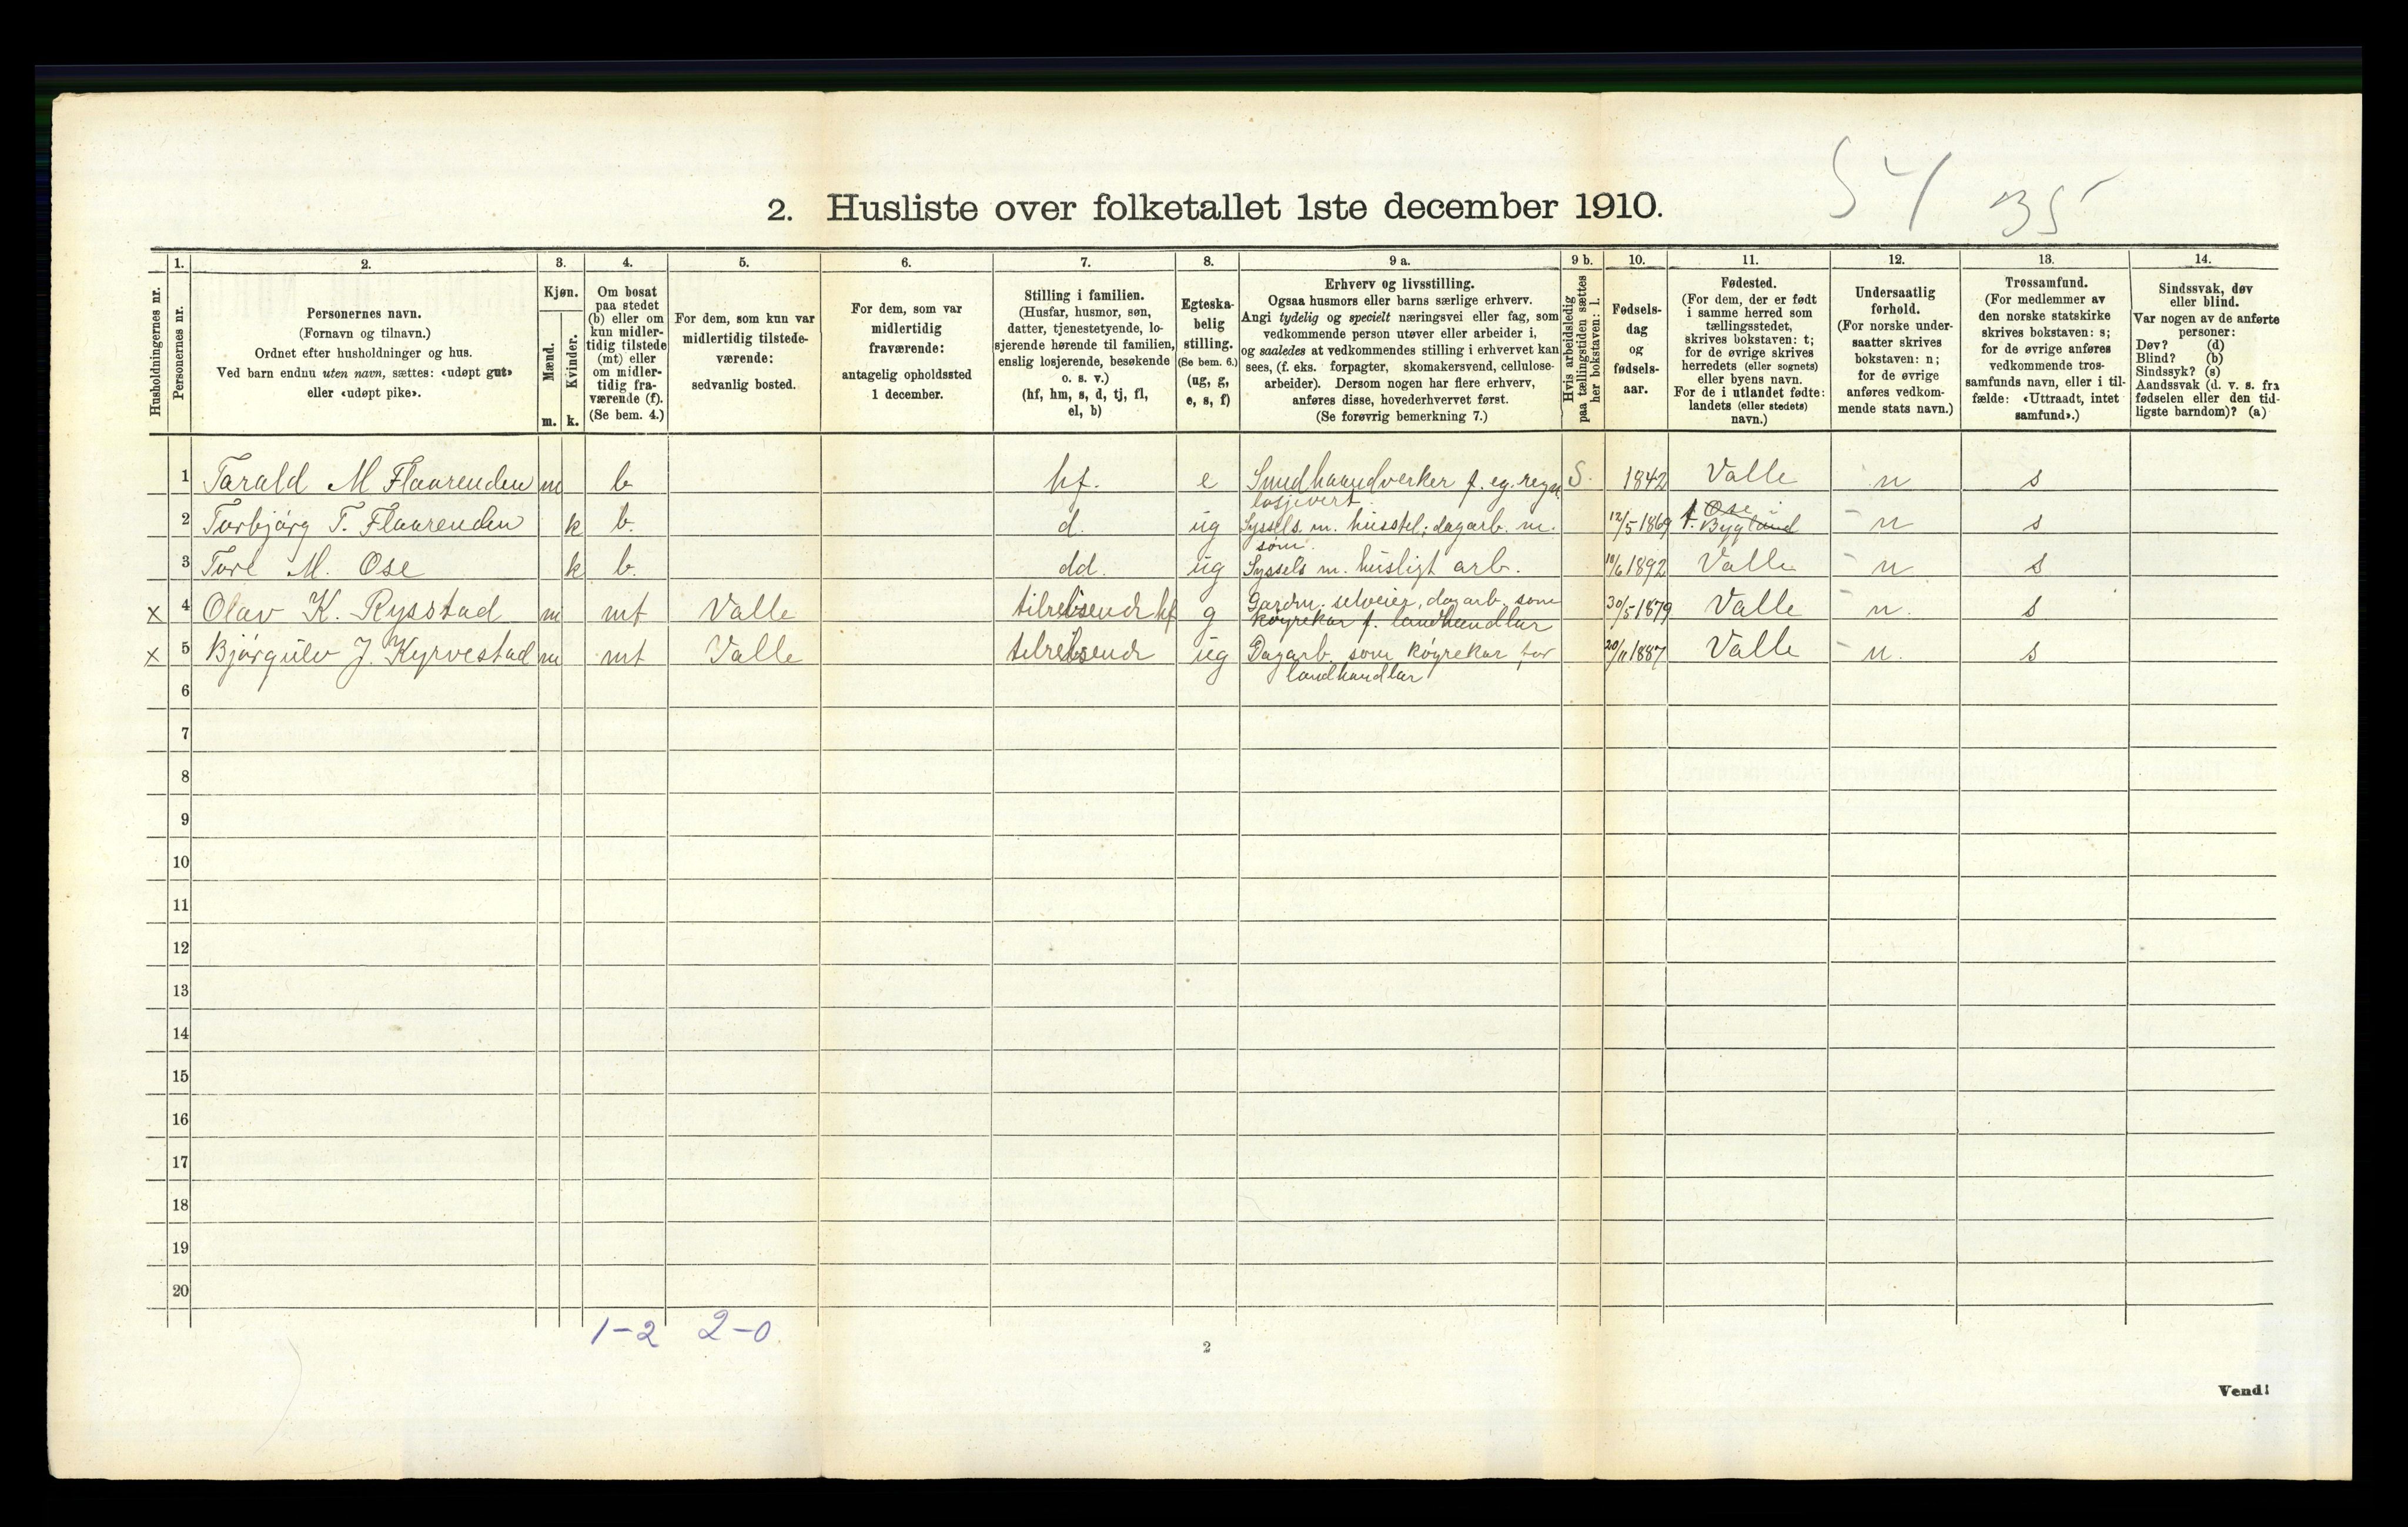 54 35
2. Husliste over folketallet 1ste december 1910.
Husholdningernes nr.
1.
Personernes nr.
2.
Personernes navn.
(Fornavn og tilnavn.)
Ordnet efter husholdninger og hus.
Ved barn endnu uten navn, sættes: «udøpt gut»
eller «udøpt pike».
3.
Kjøn.
Mænd.
m.
Kvinder.
k.
4.
Om bosat
paa stedet
(b) eller om
kun midler-
tidig tilstede
(mt) eller
om midler-
tidig fra-
værende (f).
(Se bem. 4.)
5.
For dem, som kun var
midlertidig tilstede-
værende:
sedvanlig bosted.
6.
For dem, som var
midlertidig
fraværende:
antagelig opholdssted
1 december.
7.
Stilling i familien.
(Husfar, husmor, søn,
datter, tjenestetyende, lo-
sjerende hørende til familien,
enslig losjerende, besøkende
o. s. v.)
(hf, hm, s, d, tj, fl,
el, b)
8.
Egteska-
belig
stilling.
(Se bem. 6.)
(ug, g,
e, s, f)
9 a.
Erhverv og livsstilling.
Ogsaa husmors eller barns særlige erhverv.
Angi tydelig og specielt næringsvei eller fag, som
vedkommende person utøver eller arbeider i,
og saaledes at vedkommendes stilling i erhvervet kan
sees, (f. eks. forpagter, skomakersvend, cellulose-
arbeider). Dersom nogen har flere erhverv,
anføres disse, hovederhvervet først.
(Se forøvrig bemerkning 7.)
9 b.
Hvis arbeidsledig
paa tællingstiden sættes
her bokstaven: l.
10.
Fødsels-
dag
og
fødsels-
aar.
11.
Fødested.
(For dem, der er født
i samme herred som
tællingsstedet,
skrives bokstaven: t;
for de øvrige skrives
herredets (eller sognets)
eller byens navn.
For de i utlandet fødte:
landets (eller stedets)
navn.)
12.
Undersaatlig
forhold.
(For norske under-
saatter skrives
bokstaven: n;
for de øvrige
anføres vedkom-
mende stats navn.)
13.
Trossamfund.
(For medlemmer av
den norske statskirke
skrives bokstaven: s;
for de øvrige anføres
vedkommende tros-
samfunds navn, eller i til-
fælde: «Uttraadt, intet
samfund».)
14.
Sindssvak, døv
eller blind.
Var nogen av de anførte
personer:
Døv? (d)
Blind? (b)
Sindssyk? (s)
Aandssvak (d. v. s. fra
fødselen eller den tid-
ligste barndom)? (a)
1 Tarald M Flaarenden m b hf. e Smedhaandverker f. eg. regn. S. 1842 Valle n s
losjevert
2 Torbjørg T. Flaarenden k b. d. ug Syssels. m. husstel; dagarb. m. 12/5 1869 t. Bygland n s
søm. Ose
3 Tore M. Ose k b. dd. ug Syssels m. husligt arb. 10/6 1892 Valle n s
x 4 Olav K. Rysstad m mt Valle tilreisende hf g Gardm. selveier, dagarb. som 30/5 1879 Valle n. s
køyrekar f. landhandlar
x 5 Bjørgulv J. Kyrvestad m mt Valle tilreisende ug Dagarb. som køyrekar for 20/11 1887 Valle n. s
landhandlar
6
7
8
9
10
11
12
13
14
15
16
17
18
19
20
1-2 2-0
2
Vend!